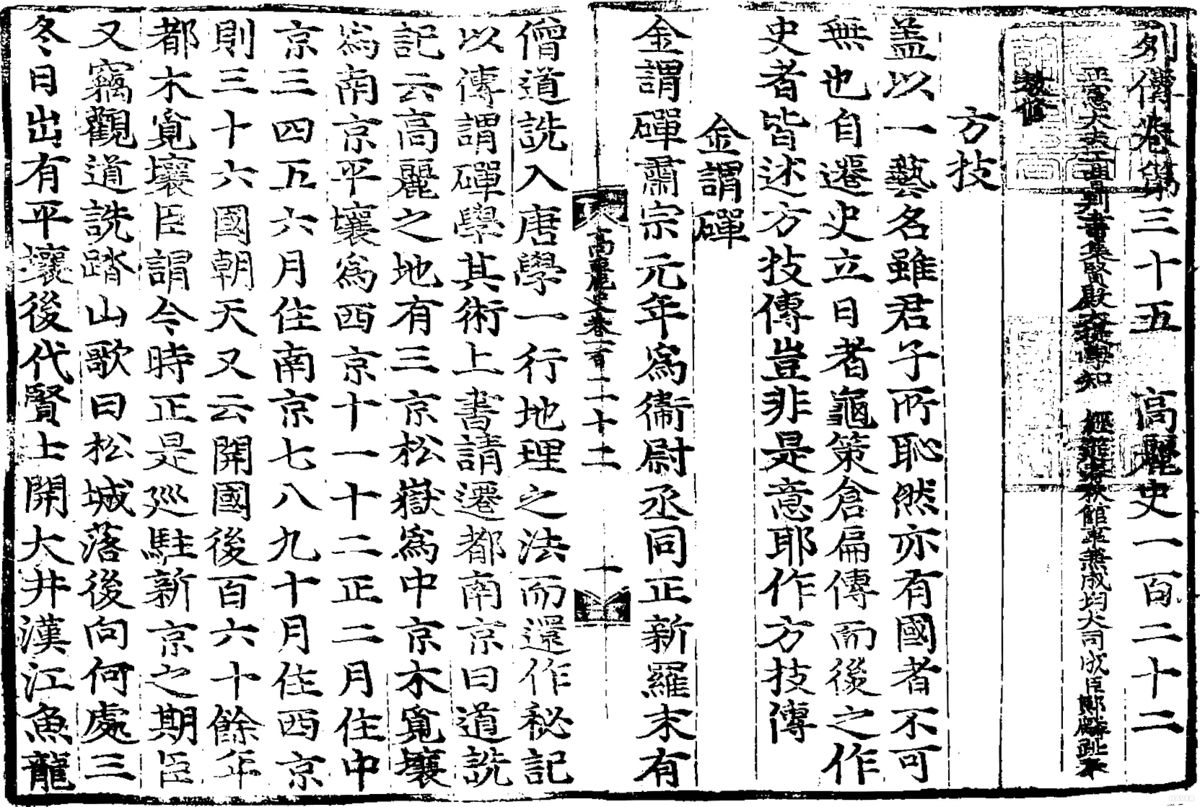 列傳卷第三十五　高麗史一百二十二
正憲大夫工曹判書集賢殿大提學知　經筵春秋館事兼成均大司成臣鄭麟趾奉
教修
方技
盖以一藝名雖君子所恥然亦有國者不可
無也自遷史立日者龜策倉扁傳而後之作
史者皆述方技傳豈非是意耶作方技傳
金謂磾
金謂磾肅宗元年爲衛尉丞同正新羅末有
高麗史卷一百二十二　一
僧道詵入唐學一行地理之法而還作秘記
以傳謂磾學其術上書請遷都南京曰道詵
記云高麗之地有三京松嶽爲中京木覓壤
爲南京平壤爲西京十一十二正二月住中
京三四五六月住南京七八九十月住西京
則三十六國朝天又云開國後百六十餘年
都木覓壤臣謂今時正是巡駐新京之期臣
又竊觀道詵踏山歌曰松城落後向何處三
冬日出有平壤後代賢士開大井漢江魚龍